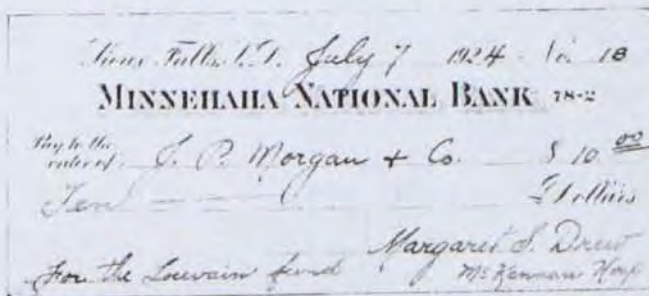 Sioux Falls, S.D. July 7 1924 No. 18
MINNEHAHA NATIONAL BANK 78-2
Pay to the order of J. P. Morgan & Co. $ 10.00
Ten Dollars
Margaret S. Drew
For the Louvain fund McKennan Hosp